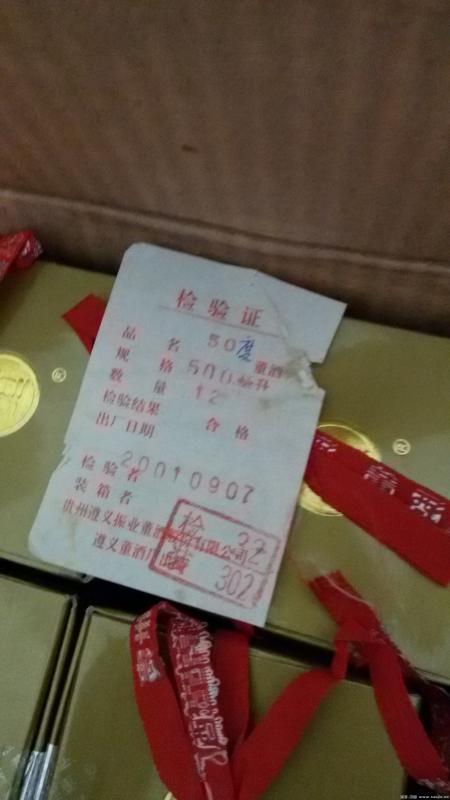 检验证
品名 50度 董酒
规格 500毫升
数量 12
检验结果 合格
出厂日期
20010907
检验者
装箱者
贵州遵义振业董酒 有限公司
遵义董酒厂
检 32
装 302
®
®
www.